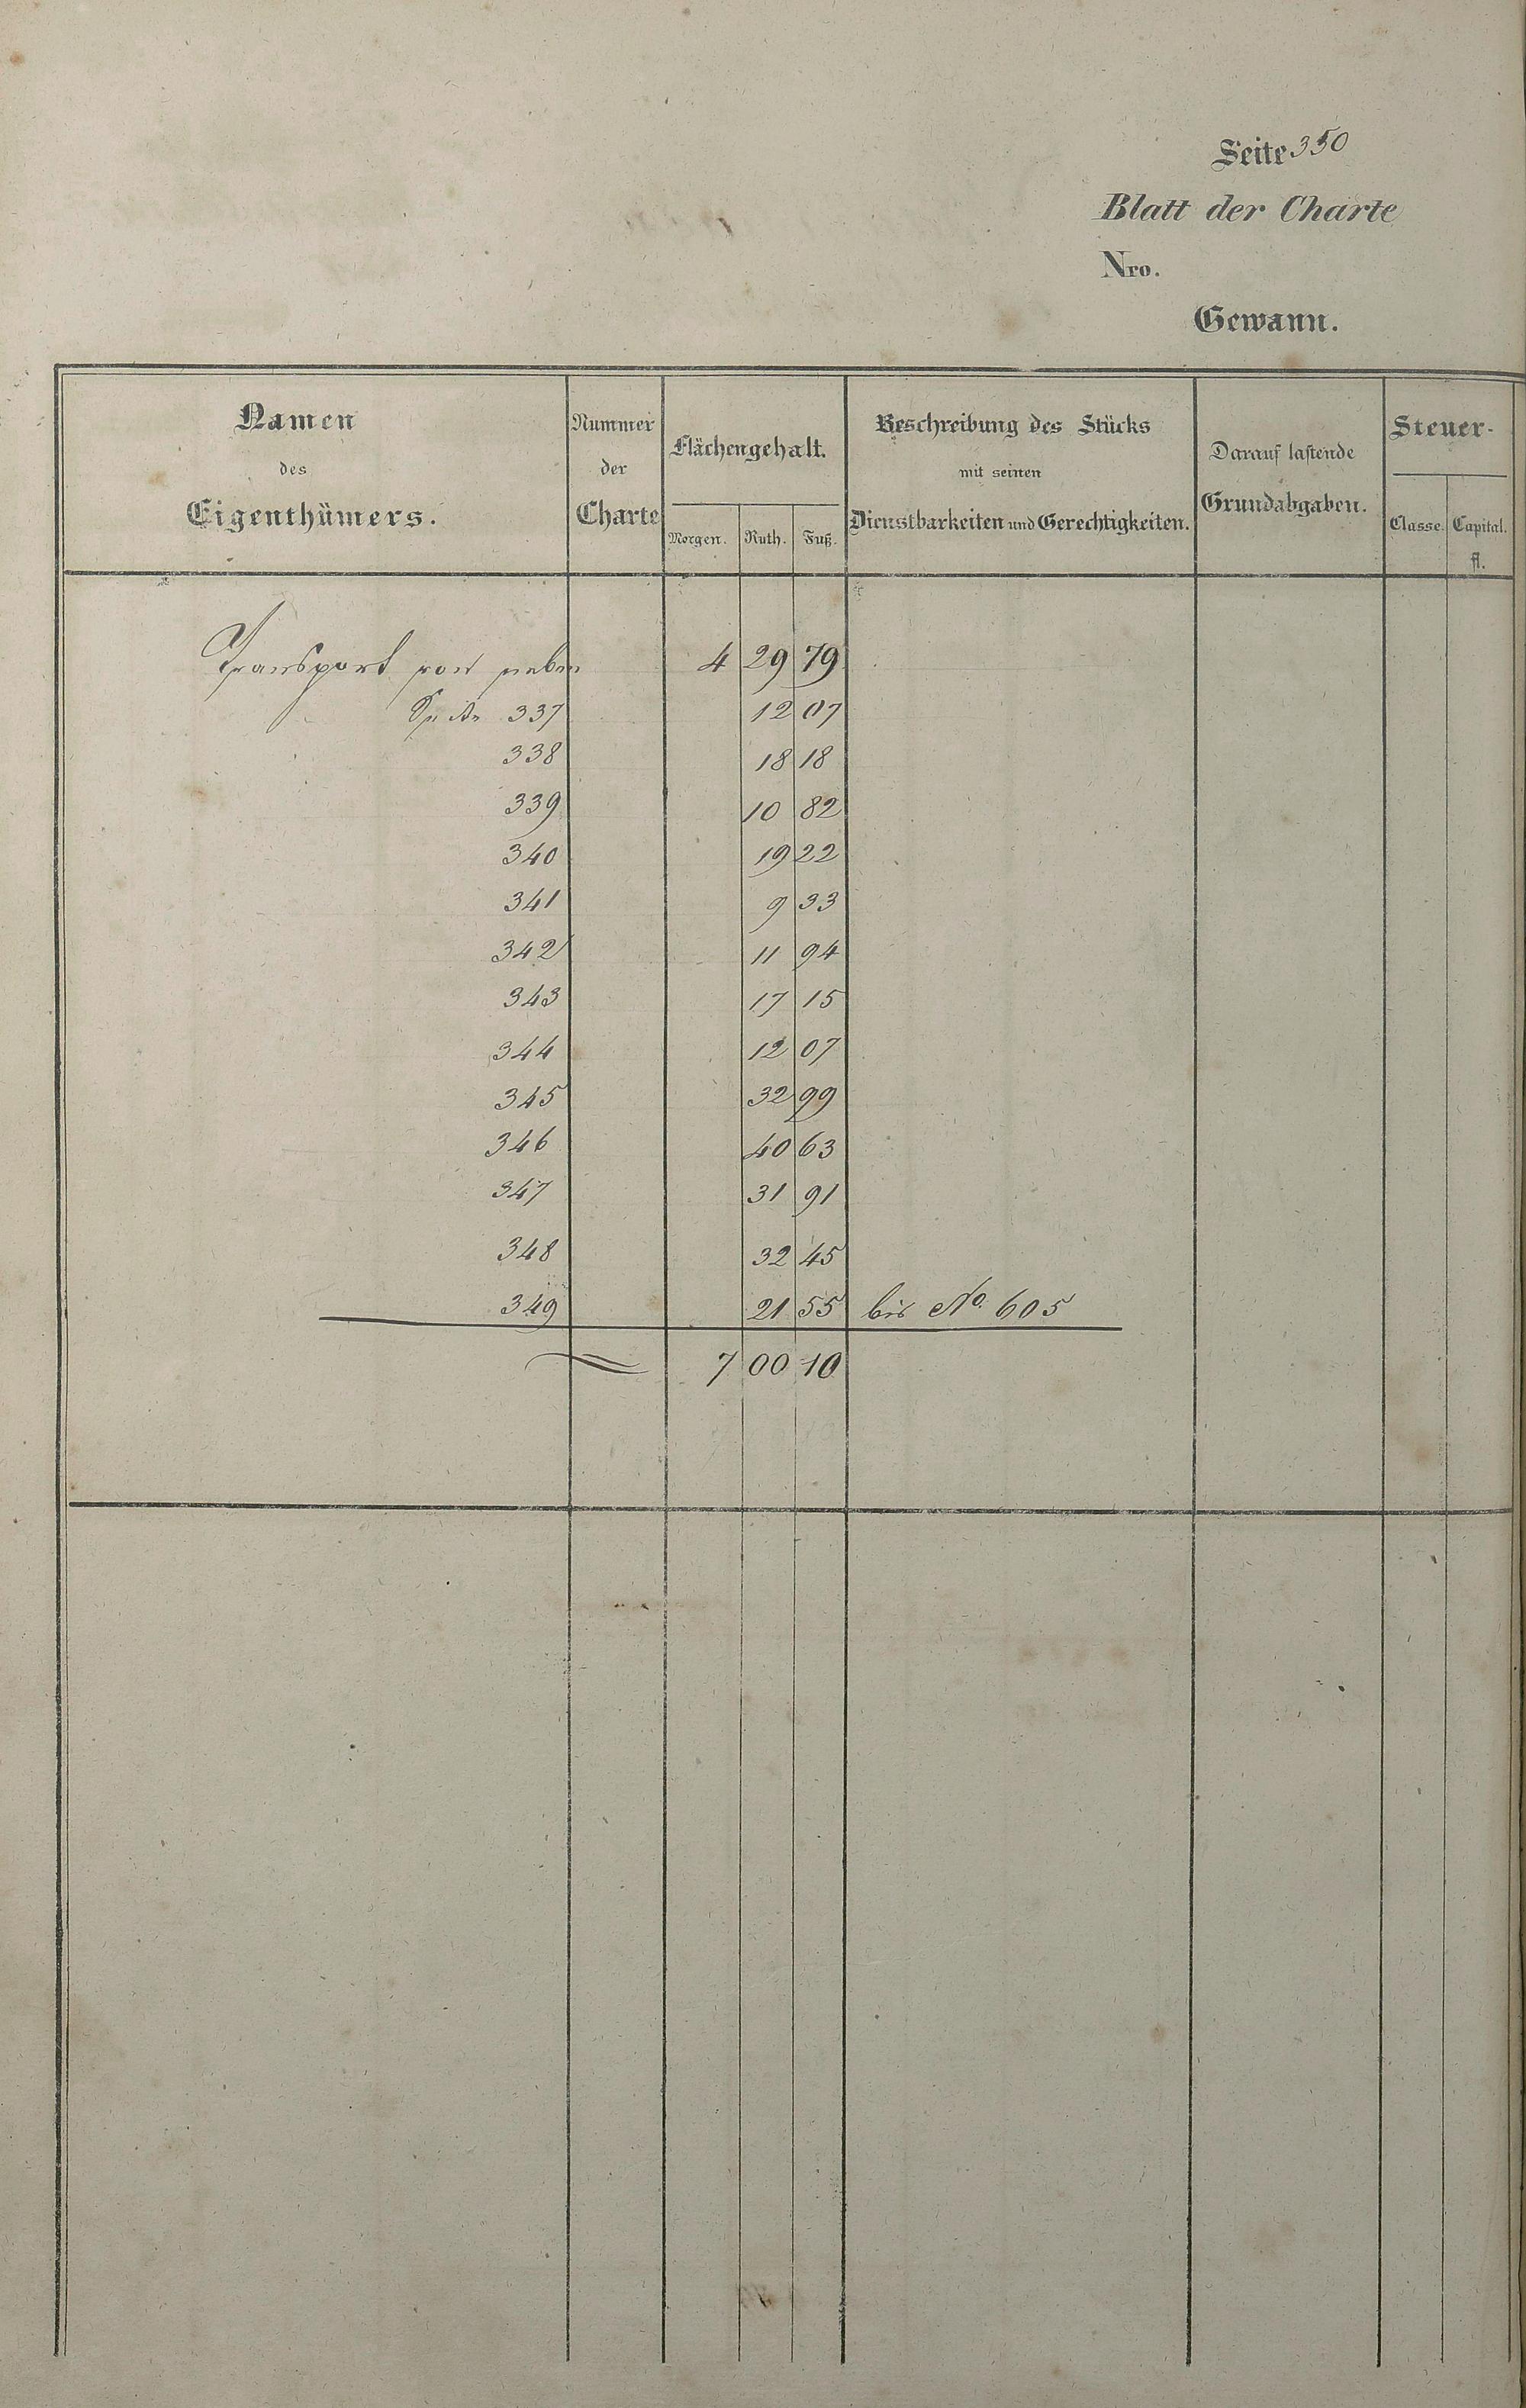 Seite 350
Blatt der Charte
Nro.
Gewann.
Namen des Eigenthümers. Nummer der Charte Flächengehalt. Morgen. Ruth. Fuß. Beschreibung des Stücks mit seinen Dienstbarkeiten und Gerechtigkeiten. Darauf lastende Grundabgaben. Steuer- Classe. Capital. fl.
Transport von neben 4 29 79
Seite 337 12 07
338 18 18
339 10 82
340 19 22
341 9 33
342 11 94
343 17 15
344 12 07
345 32 99
346 40 63
347 31 91
348 32 45
349 21 55 bis No. 605
7 00 10